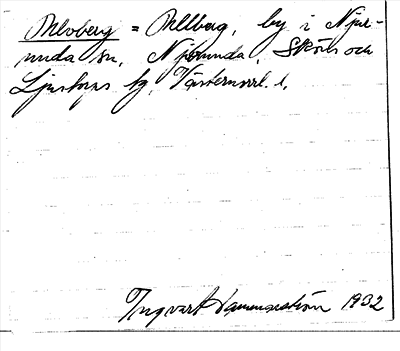 Ahlvberg = Ahllberg, by i Njur-
unda sn, Njurunda, Sköns och
Ljustorps tg, Västernorrl. l.
Ingvart Hammarström 1932